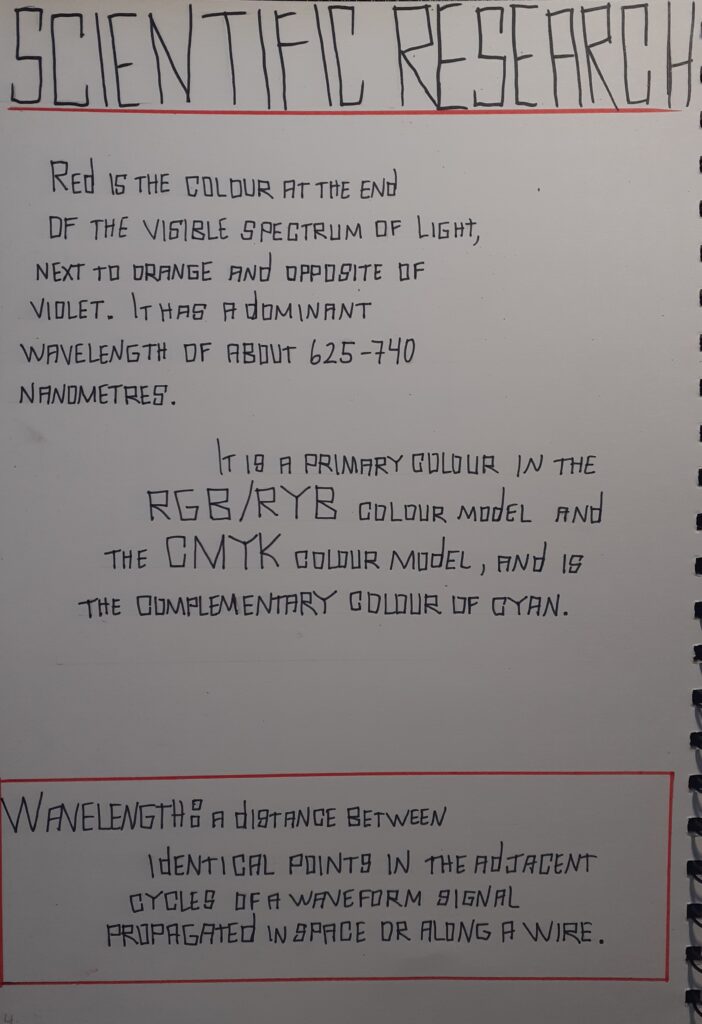 SCIENTIFIC RESEARCH
Red IS THE COLOUR AT THE END
OF THE VISIBLE SPECTRUM OF LIGHT,
NEXT TO ORANGE AND OPPOSITE OF
VIOLET. IT HAS A DOMINANT
WAVELENGTH OF ABOUT 625-740
NANOMETRES.
IT IS A PRIMARY COLOUR IN THE
RGB/RYB COLOUR MODEL AND
THE CMYK COLOUR MODEL, AND IS
THE COMPLEMENTARY COLOUR OF CYAN.
WAVELENGTH: A DISTANCE BETWEEN
IDENTICAL POINTS IN THE ADJACENT
CYCLES OF A WAVEFORM SIGNAL
PROPAGATED IN SPACE OR ALONG A WIRE.